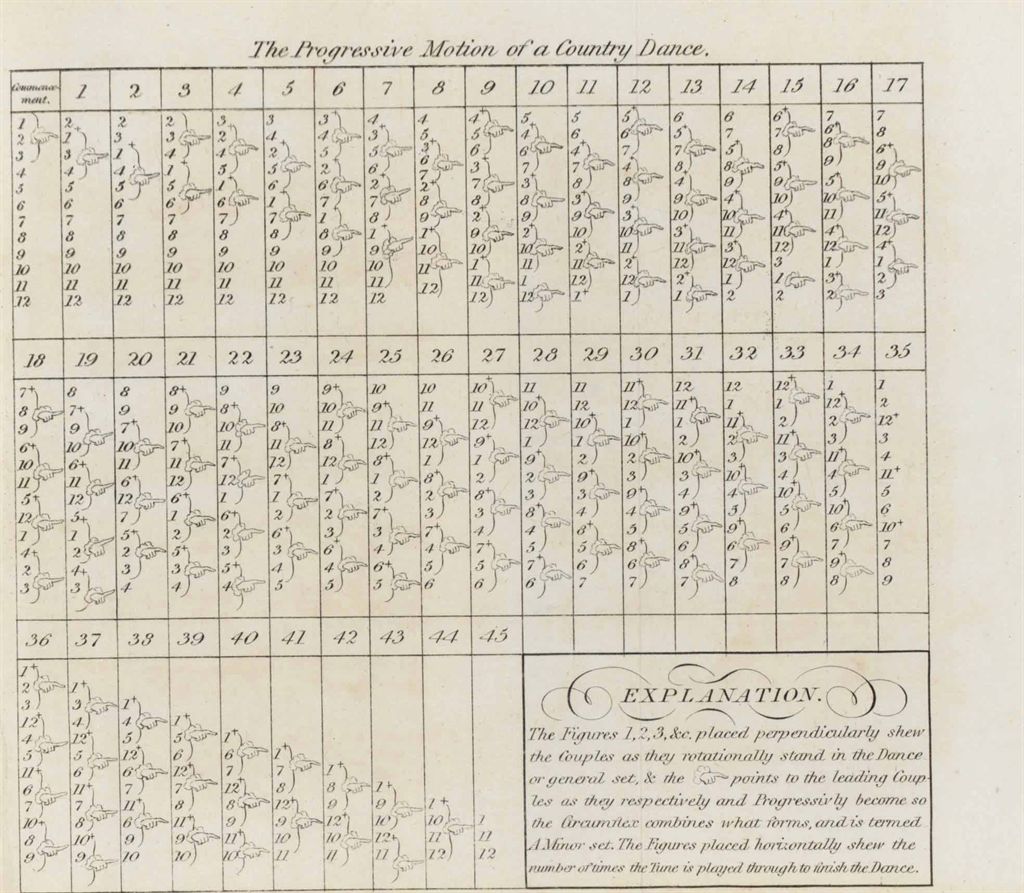 The Progressive Motion of a Country Dance.
Commence-ment. 1 2 3 4 5 6 7 8 9 10 11 12 13 14 15 16 17
1 2 2 2 3 3 3+ 4 4 4+ 5 5 5+ 6 6 6+ 7 7
2 1+ 3 3 2 4 4 3+ 5 5 4+ 6 6 5+ 7 7 6+ 8
3 3 1 4 4 2 5 5 3+ 6 6 4+ 7 7 5+ 8 8 6+
4 4 4 1 5 5 2 6 6 3+ 7 7 4+ 8 8 5+ 9 9
5 5 5 5 1+ 6 6 2+ 7 7 3+ 8 8 4+ 9 9 5+ 10
6 6 6 6 6 1 7 7 2+ 8 8 3+ 9 9 4+ 10 10 5+
7 7 7 7 7 7 1 8 8 2+ 9 9 3+ 10 10 4+ 11 11
8 8 8 8 8 8 8 1+ 9 9 2+ 10 10 3+ 11 11 4+ 12
9 9 9 9 9 9 9 9 1+ 10 10 2+ 11 11 3+ 12 12 4+
10 10 10 10 10 10 10 10 10 1+ 11 11 2+ 12 12 3 1 1
11 11 11 11 11 11 11 11 11 11 1 12 12 2+ 1 1 3+ 2
12 12 12 12 12 12 12 12 12 12 12 1+ 1 1 2 2 2 3
18 19 20 21 22 23 24 25 26 27 28 29 30 31 32 33 34 35
7+ 8 8 8+ 9 9 9+ 10 10 10+ 11 11 11+ 12 12 12+ 1 1
8 7+ 9 9 8+ 10 10 9+ 11 11 10+ 12 12 11+ 1 1 12+ 2
9 9 7+ 10 10 8+ 11 11 9+ 12 12 10+ 1 1 11+ 2 2 12+
6+ 10 10 7+ 11 11 8+ 12 12 9+ 1 1 10+ 2 2 11+ 3 3
10 6+ 11 11 7+ 12 12 8+ 1 1 9+ 2 2 10+ 3 3 11+ 4
11 11 6+ 12 12 7+ 1 1 8+ 2 2 9+ 3 3 10+ 4 4 11+
5+ 12 12 6+ 1 1 7+ 2 2 8+ 3 3 9+ 4 4 10+ 5 5
12 5+ 7 1 6+ 2 2 7+ 3 3 8+ 4 4 9+ 5 5 10+ 6
1 1 5+ 2 2 6+ 3 3 7+ 4 4 8+ 5 5 9+ 6 6 10+
4+ 2 2 5+ 3 3 6+ 4 4 7+ 5 5 8+ 6 6 9+ 7 7
2 4+ 3 3 5+ 4 4 6+ 5 5 7+ 6 6 8+ 7 7 9+ 8
3 3 4 4 4 5 5 5 6 6 6 7 7 7 8 8 8 9
36 37 38 39 40 41 42 43 44 45
1+
2 1+
3 3 1+
12+ 4 4 1+
4 12+ 5 5 1+
5 5 12+ 6 6 1+
11+ 6 6 12+ 7 7 1+
6 11+ 7 7 12+ 8 8 1+
7 7 11+ 8 8 12+ 9 9 1+
10+ 8 8 11+ 9 9 12+ 10 10 1
8 10+ 9 9 11+ 10 10 12+ 11 11
9 9 10 10 10 11 11 11 12 12
EXPLANATION.
The Figures 1, 2, 3, &c. placed perpendicularly shew
the Couples as they rotationally stand in the Dance
or general set, & the points to the leading Coup-
les as they respectively and Progressivly become so
the Circumflex combines what forms, and is termed
A Minor set. The Figures placed horizontally shew the
number of times the Tune is played through to finish the Dance.